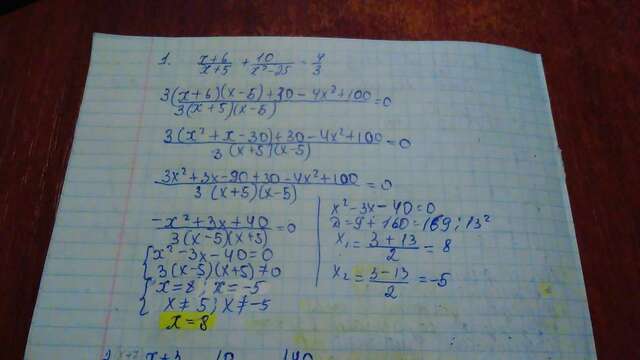 1. x+6/x+5 + 10/x²-25 = 4/3
3(x+6)(x-5)+30-4x²+100/3(x+5)(x-5) =0
3(x²+x-30)+30-4x²+100/3(x+5)(x-5) =0
3x²+3x-90+30-4x²+100/3(x+5)(x-5) =0
-x²+3x+40/3(x-5)(x+5) =0
{x²-3x-40=0
{3(x-5)(x+5)≠0
{x=8; x=-5
{x≠5; x≠-5
x=8
x²-3x-40=0
D=9+160=169; 13²
x₁=3+13/2=8
x₂=3-13/2=-5